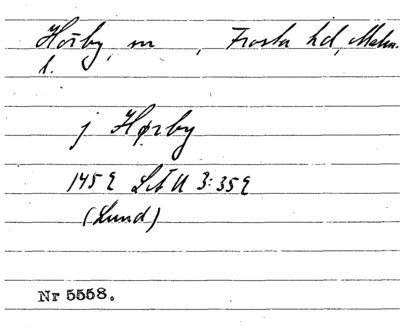 Hörby, sn , Frosta hd, Malm.
l.
j Hørby
1452 LÄU 3:352
(Lund)
Nr 5558.